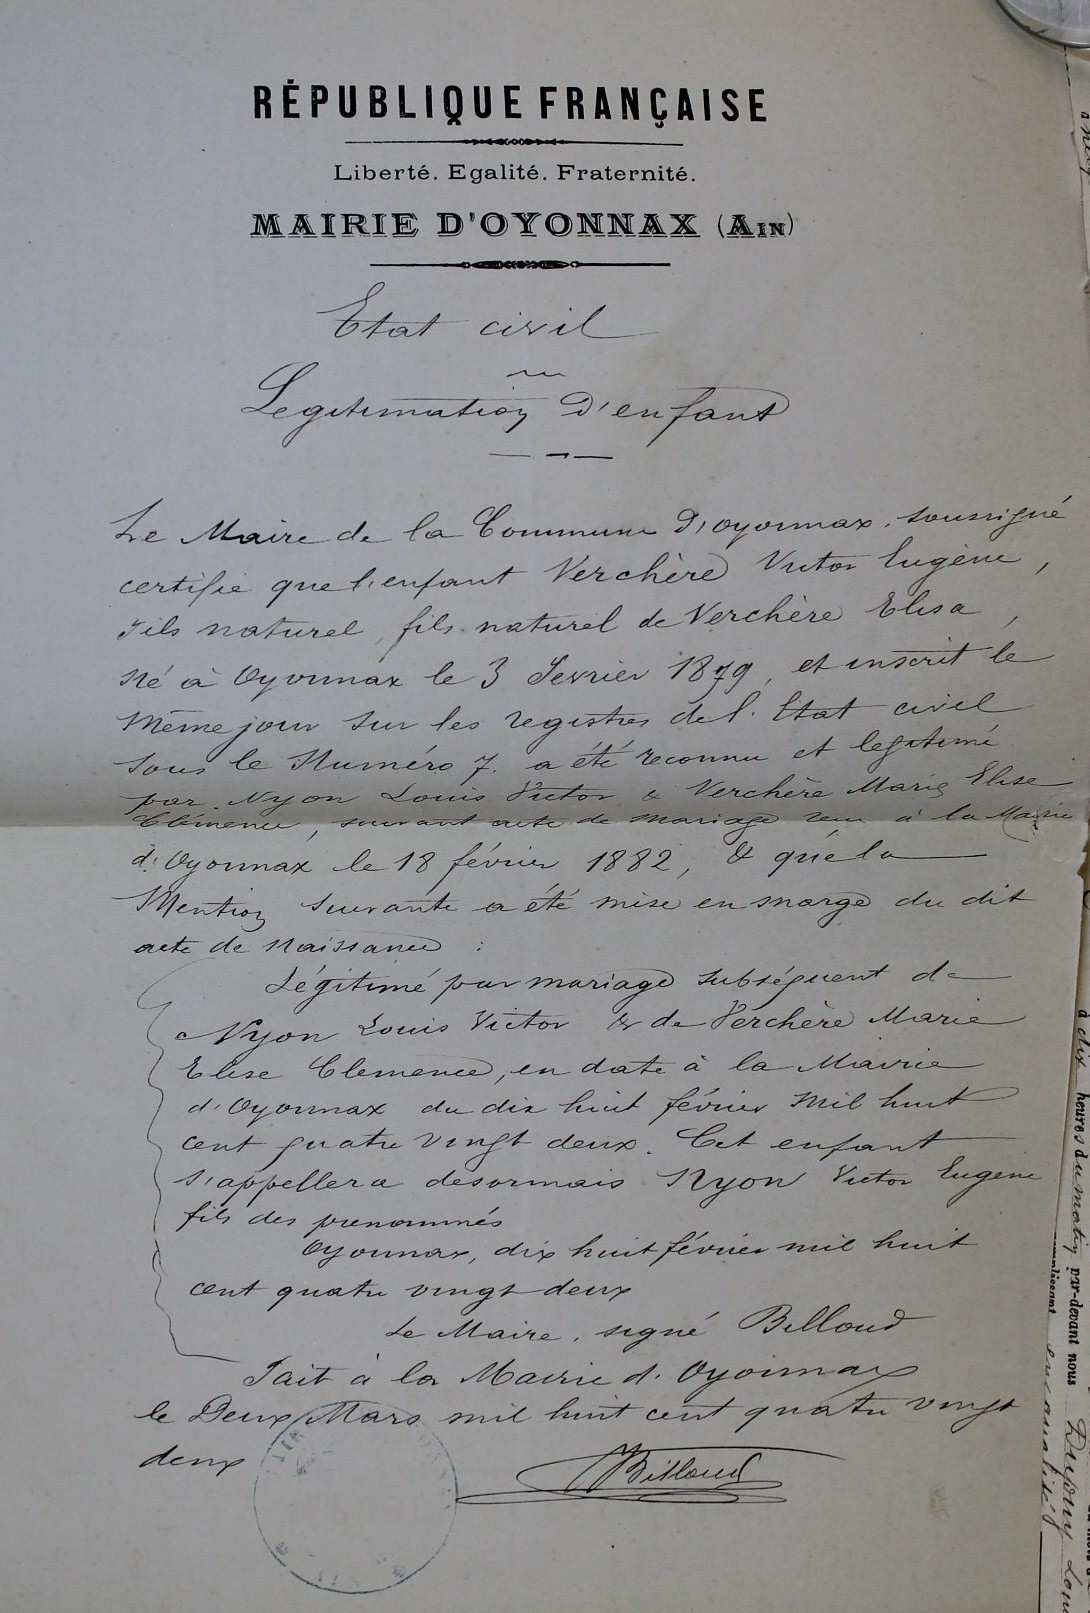 RÉPUBLIQUE FRANÇAISE
Liberté. Egalité. Fraternité.
MAIRIE D'OYONNAX (AIN)
Etat civil
Legitimation d'enfant
Le Maire de la Commune d'oyonnax, soussigné
certifie que l'enfant Verchère Victor Eugène,
fils naturel, fils naturel de Verchère Elisa,
né à Oyonnax le 3 Fevrier 1879, et inscrit le
même jour sur les registres de l'Etat civil
sous le Numéro 7. a été reconnu et legitimé
par Nyon Louis Victor & Verchère Marie Elise
Clémence, suivant acte de mariage reçu à la Mairie
d'Oyonnax le 18 février 1882, & que la
Mention suivante a été mise en marge du dit
acte de Naissance :
Légitimé par mariage subséquent de
Nyon Louis Victor & de Verchère Marie
Elise Clemence, en date à la Mairie
d'Oyonnax du dix huit février mil huit
cent quatre vingt deux. Cet enfant
s'appellera desormais Nyon Victor Eugène
fils des prenommés
Oyonnax, dix huit février mil huit
cent quatre vingt deux
Le Maire, signé Billoud
Fait à la Mairie d'Oyonnax
le Deux Mars mil huit cent quatre vingt
deux
Billoud
à dix heures du matin par-devant nous Dupuy